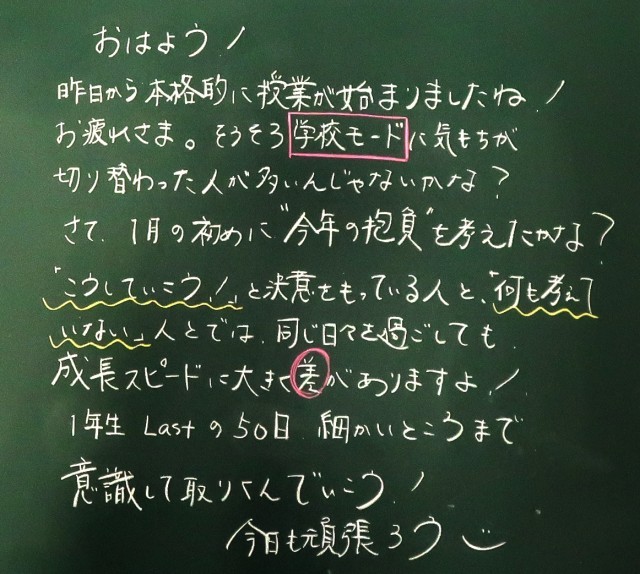 おはよう!
昨日から本格的に授業が始まりましたね!
お疲れさま。そろそろ学校モードに気もちが
切り替わった人が多いんじゃないかな?
さて、1月の初めに"今年の抱負"を考えたかな?
「こうしていこう!」と決意をもっている人と、「何も考えて
いない」人とでは、同じ日々を過ごしても、
成長スピードに大きく差がありますよ!
1年生 Lastの50日、細かいところまで
意識して取りくんでいこう!
今日も頑張ろう